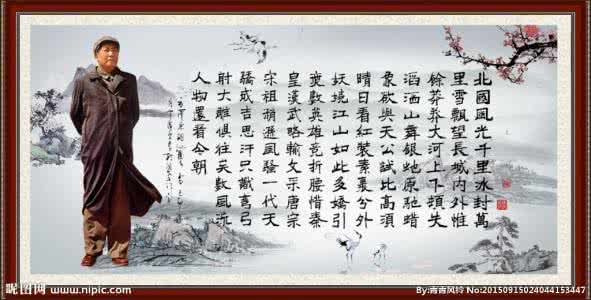 北國風光千里冰封萬
里雪飄望長城內外惟
餘莽莽大河上下頓失
滔滔山舞銀蛇原馳蜡
象欲與天公試比高須
晴日看紅裝素裹分外
妖嬈江山如此多嬌引
無數英雄競折腰惜秦
皇漢武略輸文采唐宗
宋祖稍遜風騷一代天
驕成吉思汗只識彎弓
射大雕俱往矣數風流
人物還看今朝
昵图网 www.nipic.com
By:青青风铃 No:20150915024044153447